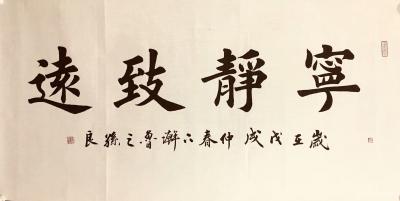 寧靜致遠
歲在戊戌仲春下澣魯之孫良